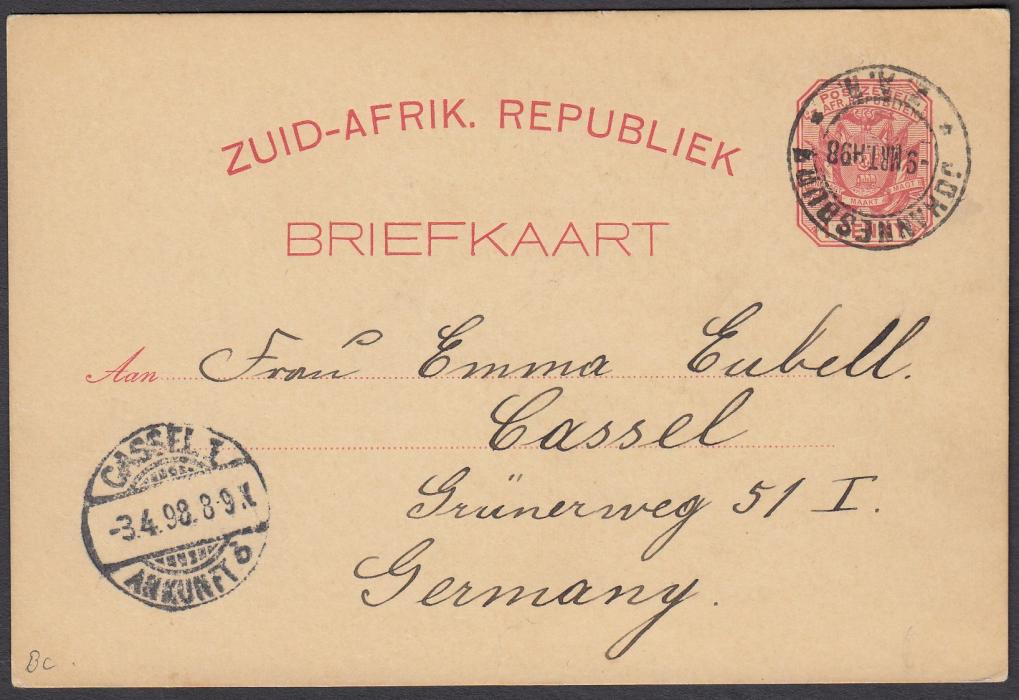 ZUID-AFRIK. REPUBLIEK
BRIEFKAART
POSTZEGEL
AFR. REPUBLIEK
MAAKT MAGT
JOHANNESBURG
-9 MRT.H98
Z.A.R.
Aan Frau Emma Eubell.
Cassel
Grünerweg 51 I.
Germany.
CASSEL 1.
-3.4.98.8-9.V.
ANKUNFT b
Bc.